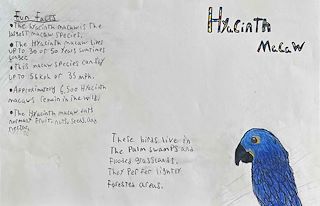 Fun Facts
• The hyacinth macaw is the
largest macaw species.
• The Hyacinth macaw lives
up to 30 or 50 years sometimes
longer.
• This macaw species can fly
up to 56 kph or 35 mph.
• Approximately 6,500 Hyacinth
macaws remain in the wild.
• The Hyacinth macaw eats
fruit, nuts, seeds, and
nectar.
Hyacinth
Macaw
These birds live in
The Palm swamps and
flooded grasslands.
They perfer lightly
forested areas.